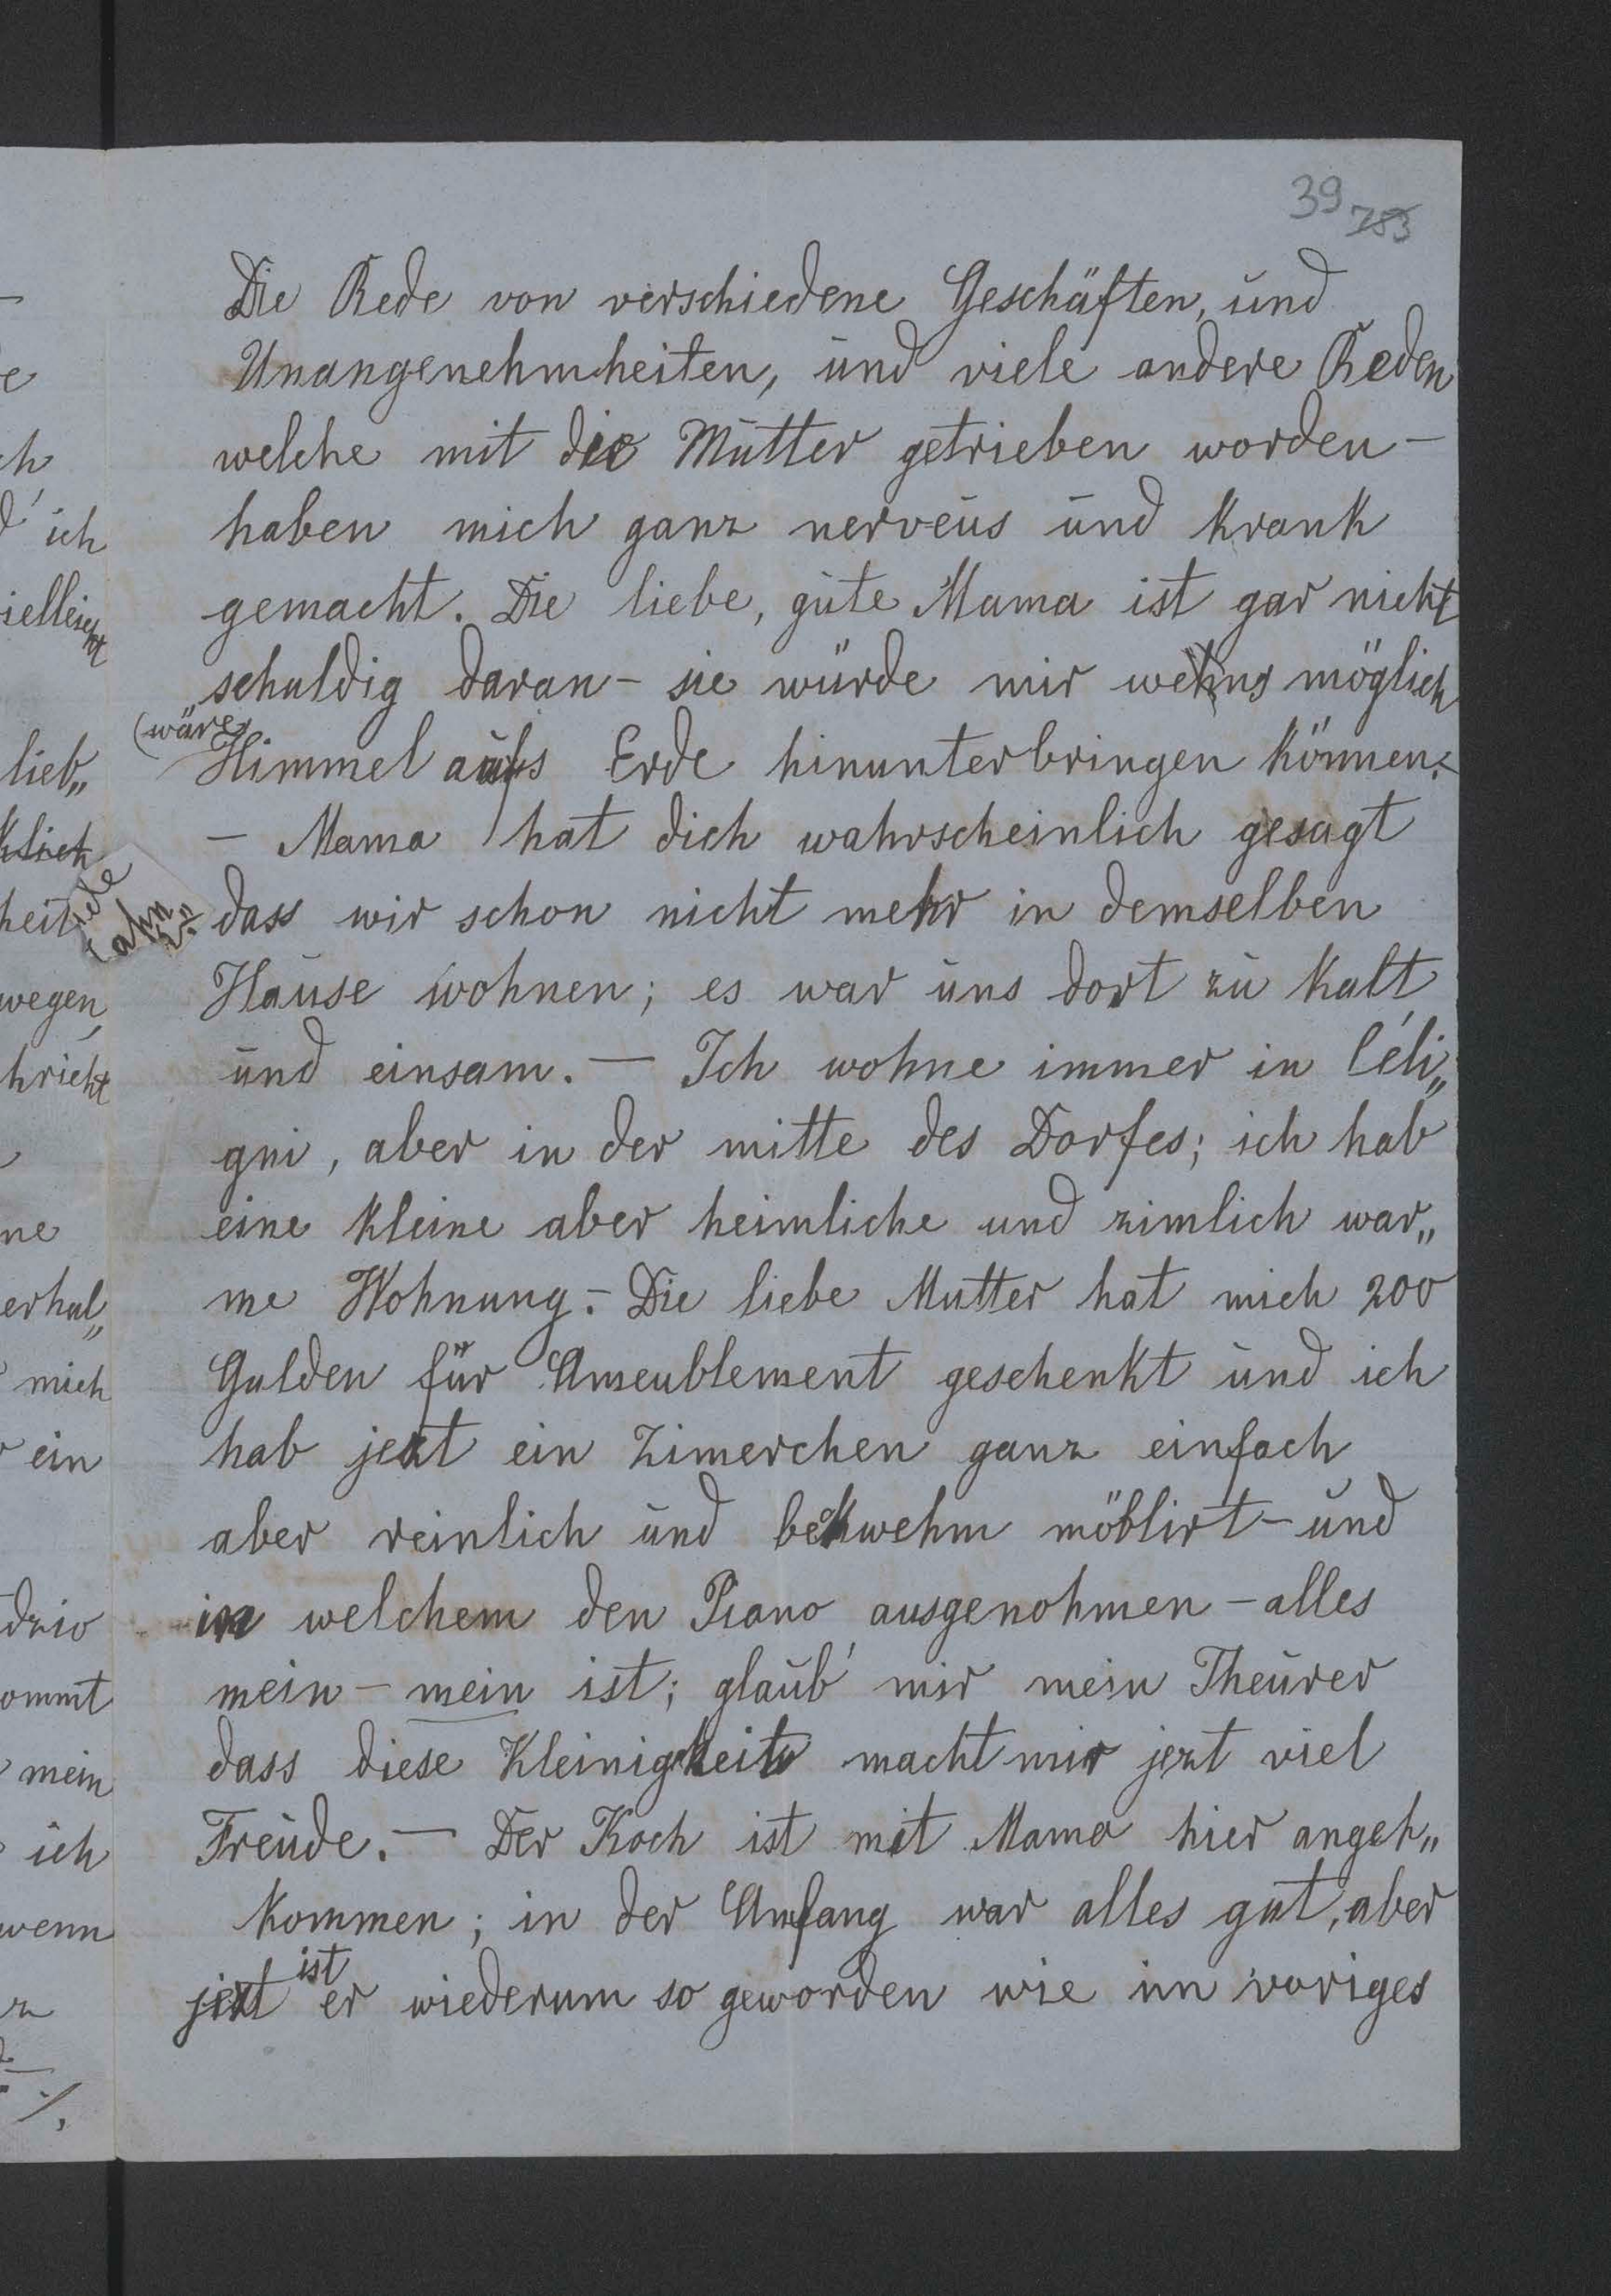 39 783
Die Rede von verschiedene Geschäften, und
Unangenehmheiten, und viele andere Reden
welche mit die Mutter getrieben worden –
haben mich ganz nerveus und krank
gemacht. Die liebe, gute Mama ist gar nicht
schuldig daran – sie würde mir wenns möglich
(wäre
Himmel aufs Erde hinunterbringen können. –
– Mama hat dich wahrscheinlich gesagt
dass wir schon nicht mehr in demselben
Hause wohnen; es war uns dort zu kalt
und einsam. – Ich wohne immer in Céli„
gni, aber in der mitte des Dorfes; ich hab
eine kleine aber heimliche und zimlich war„
me Wohnung. – Die liebe Mutter hat mich 200
Gulden für Ameublement geschenkt und ich
hab jezt ein Zimerchen ganz einfach
aber reinlich und bekwehm möblirt – und
in welchem den Piano ausgenohmen – alles
mein – mein ist; glaub' mir mein Theurer
dass diese Kleinigkeit macht mir jezt viel
Freude. – Der Koch ist mit Mama hier angeh„
kommen; in der Anfang war alles gut, aber
ist
jezt er wiederum so geworden wie im voriges
ch
ich
ielleicht
lieb„
klich
heit
wegen,
hricht
ne
erhal„
mich
ein
dzio
ommt
mein
ich
wenn
z
./.